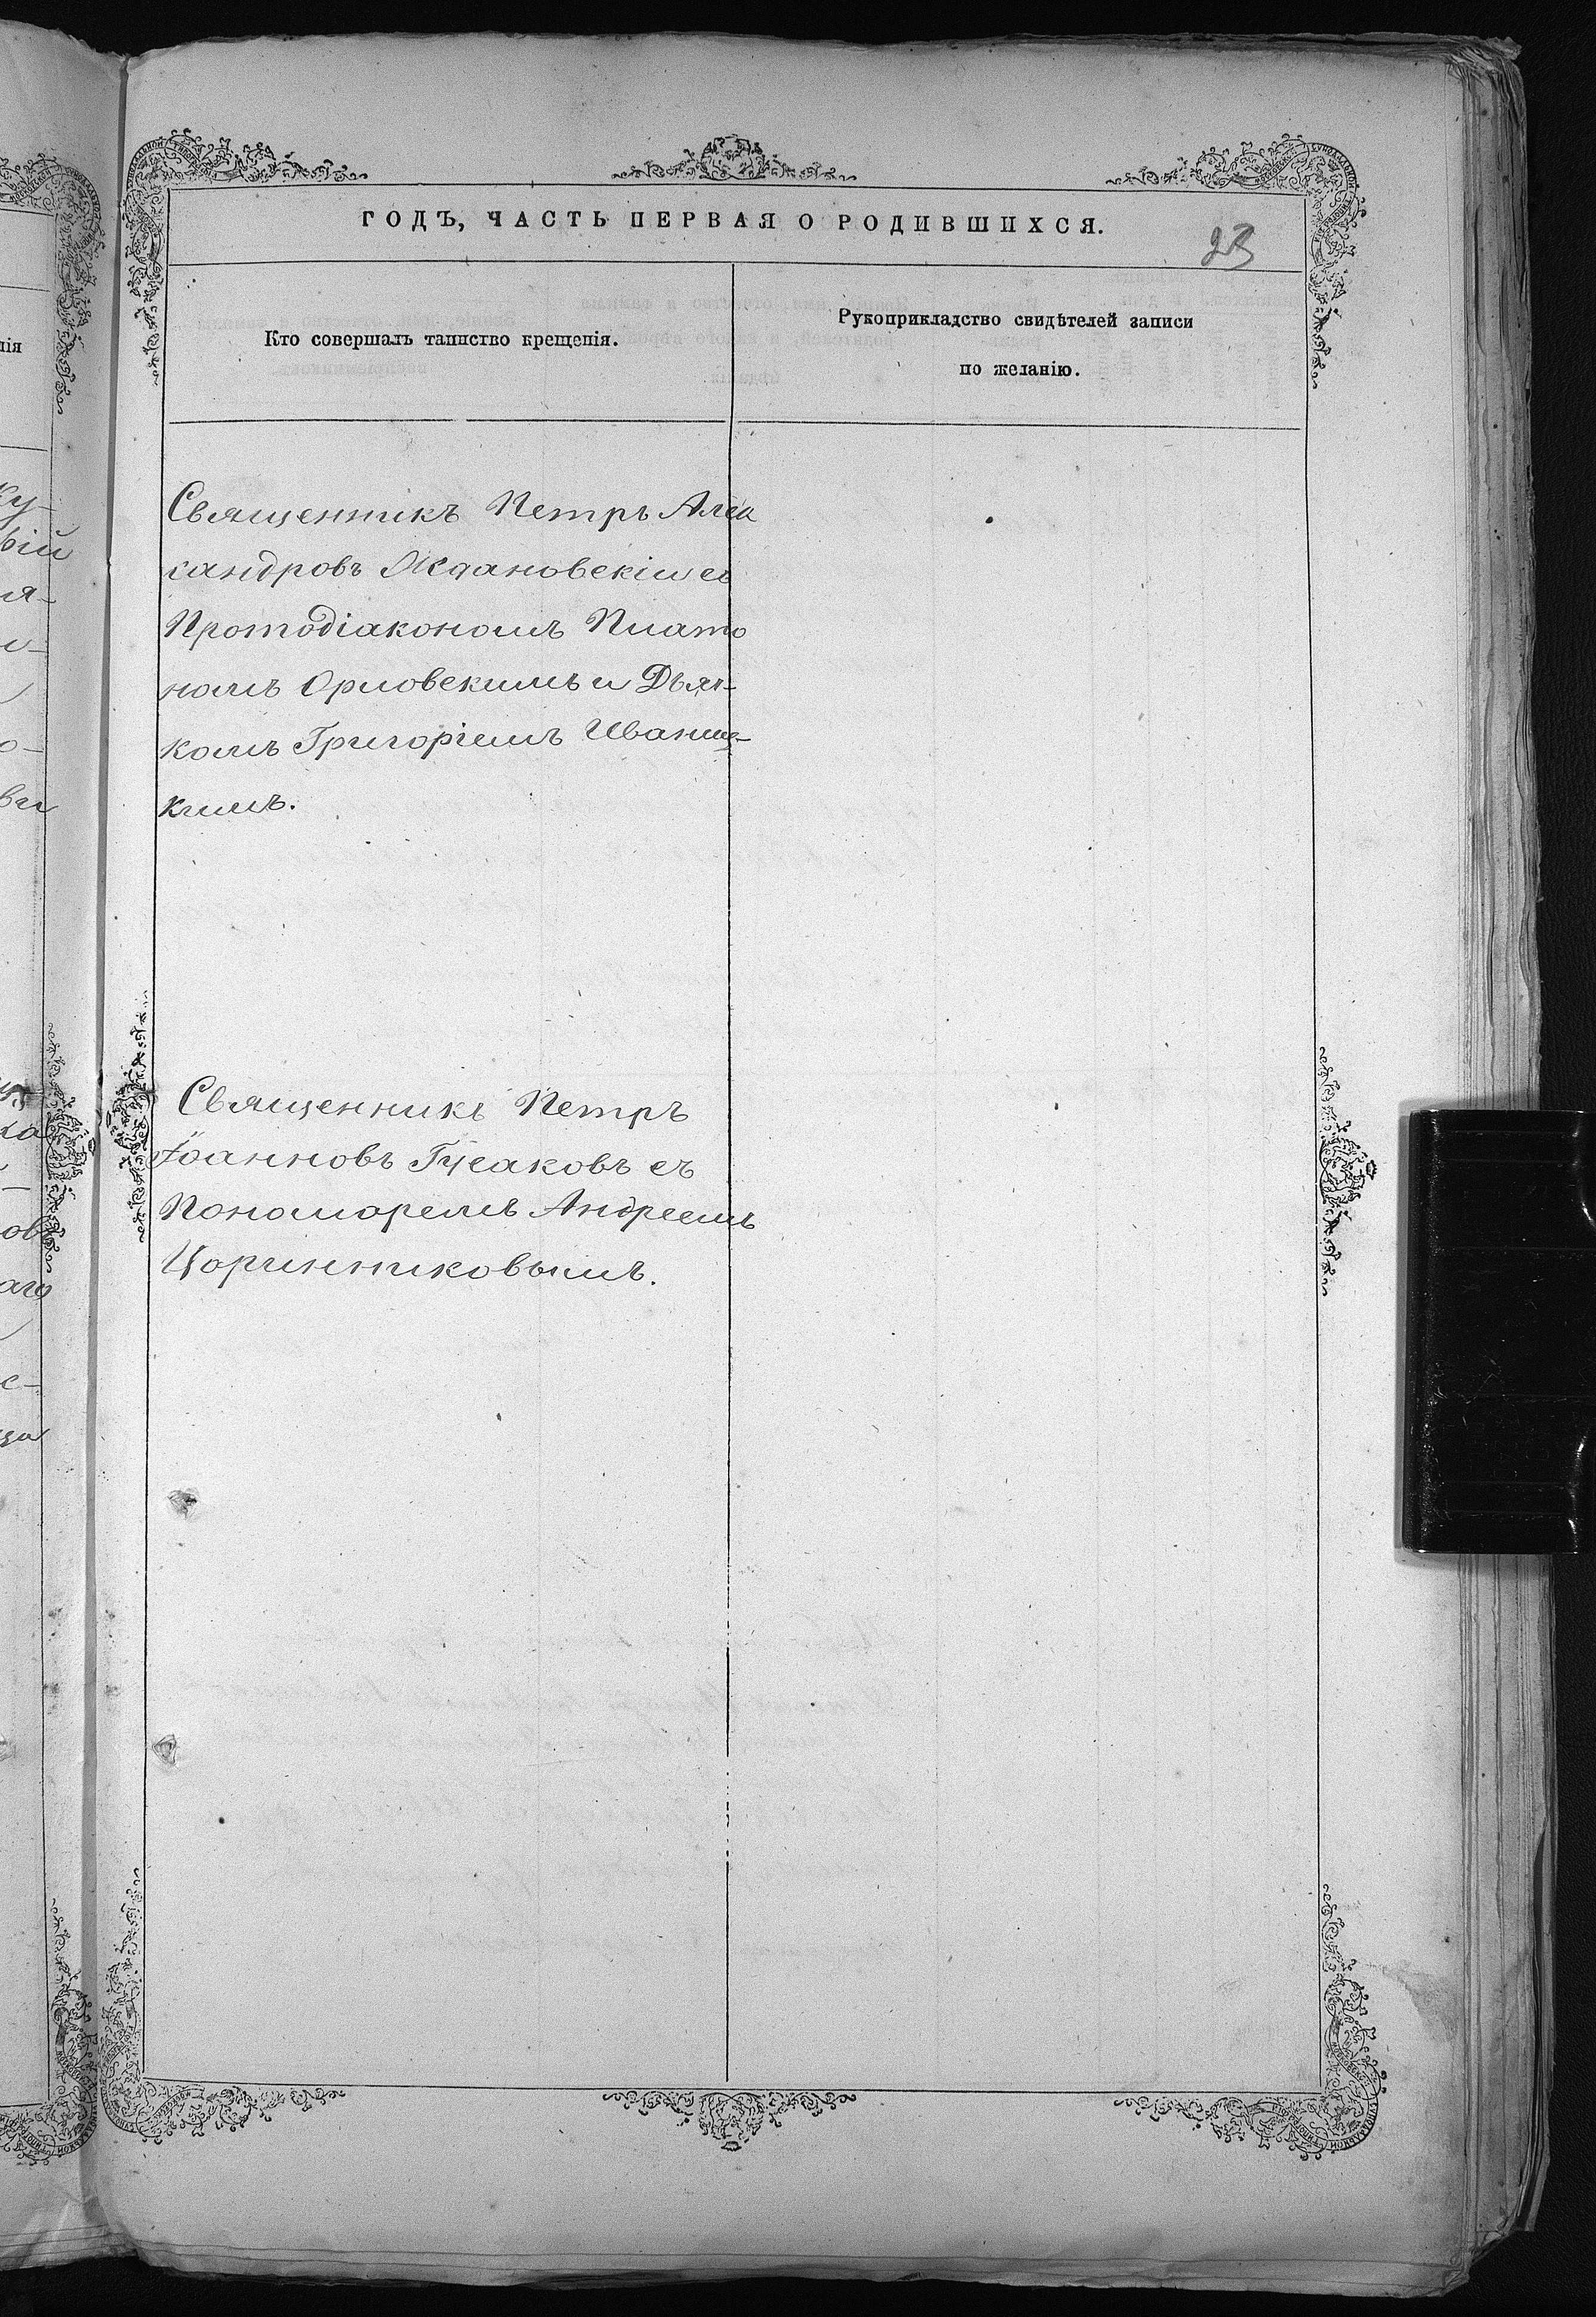 ГОДЪ, ЧАСТЬ ПЕРВАЯ О РОДИВШИХСЯ.
23
Кто совершалъ таинство крещенія.
Рукоприкладство свидѣтелей записи
по желанію.
Священникъ Петръ Алек
сандровъ Ждановскій съ
Протодіакономъ Плато
номъ Орловскимъ и Дьяч-
комъ Григоріемъ Иваниц-
кимъ.
Священникъ Петръ
Іоанновъ Гусаковъ съ
Пономаремъ Андреемъ